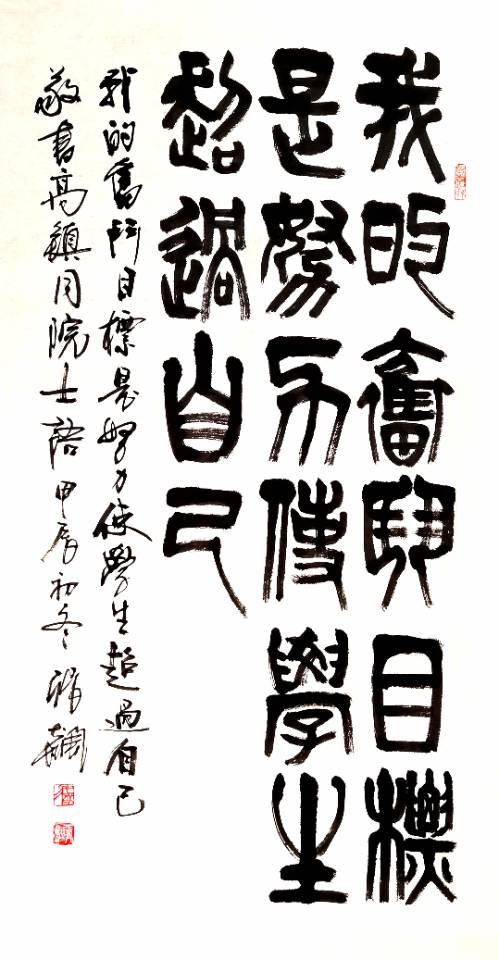 我的奮鬥目標
是努力使學生
超過自己
我的奮鬥目標是努力使學生超過自己
敬書高鎮同院士語甲辰初冬